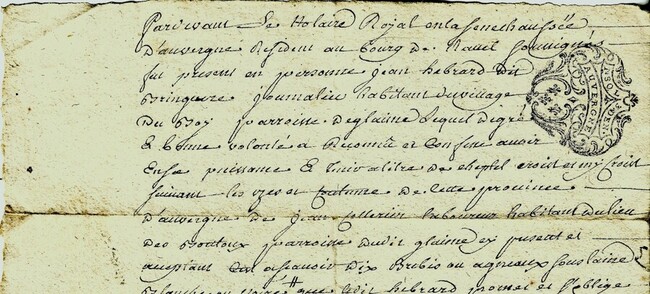 Pardevant Le Notaire Royal en la senechaussée
D'auvergne Resident au bourg de Ravel soussigné
fut present en personne jean hebrard dit
journalier habitant du village
Du parroisse de glaine Lequel de gré
Et bonne volonté a Reconnu et Confessé avoir
En sa puissance Et tenir a titre de cheptel croist et my croist
suivant les uzes et coutume De cette province
D'auvergne de jean Laboureur habitant du lieu
Des parroisse dudit glaine cy present et
acceptant Cest ascavoir Dix Brebis ou agneaux sous laine
Blanche ou noire que ledit hebrard promet et s'oblige